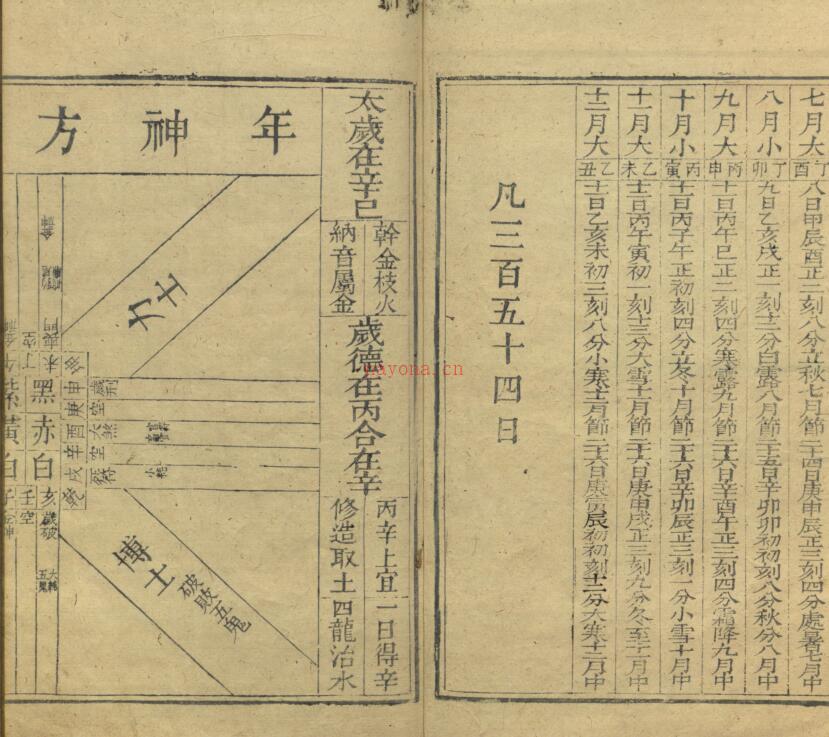 七月大
丁酉
八日甲辰酉正二刻八分立秋七月節二十四日庚申辰正三刻四分處暑七月中
八月小
丁卯
九日乙亥戌正一刻十三分白露八月節二十五日辛卯卯初初刻八分秋分八月中
九月大
丙申
十一日丙午巳正二刻四分寒露九月節二十六日辛酉午正三刻四分霜降九月中
十月小
丙寅
十一日丙子午正初刻四分立冬十月節二十六日辛卯辰正三刻一分小雪十月中
十一月大
乙未
十二日丙午寅初一刻十三分大雪十一月節二十六日庚申戌正三刻九分冬至十一月中
十二月大
乙丑
十一日乙亥未初三刻八分小寒十二月節二十六日庚寅辰初初刻十二分大寒十二月中
凡三百五十四日
太歲在辛巳
幹金枝火
納音屬金
歲德在丙合在辛
丙辛上宜
修造取土
一日得辛
四龍治水
年神方
力士
博士
破敗五鬼
黑赤白
紫黃白
未
坤
申
庚
酉
辛
戌
乾
亥
壬
歲刑
大煞
歲破
nayona.cn